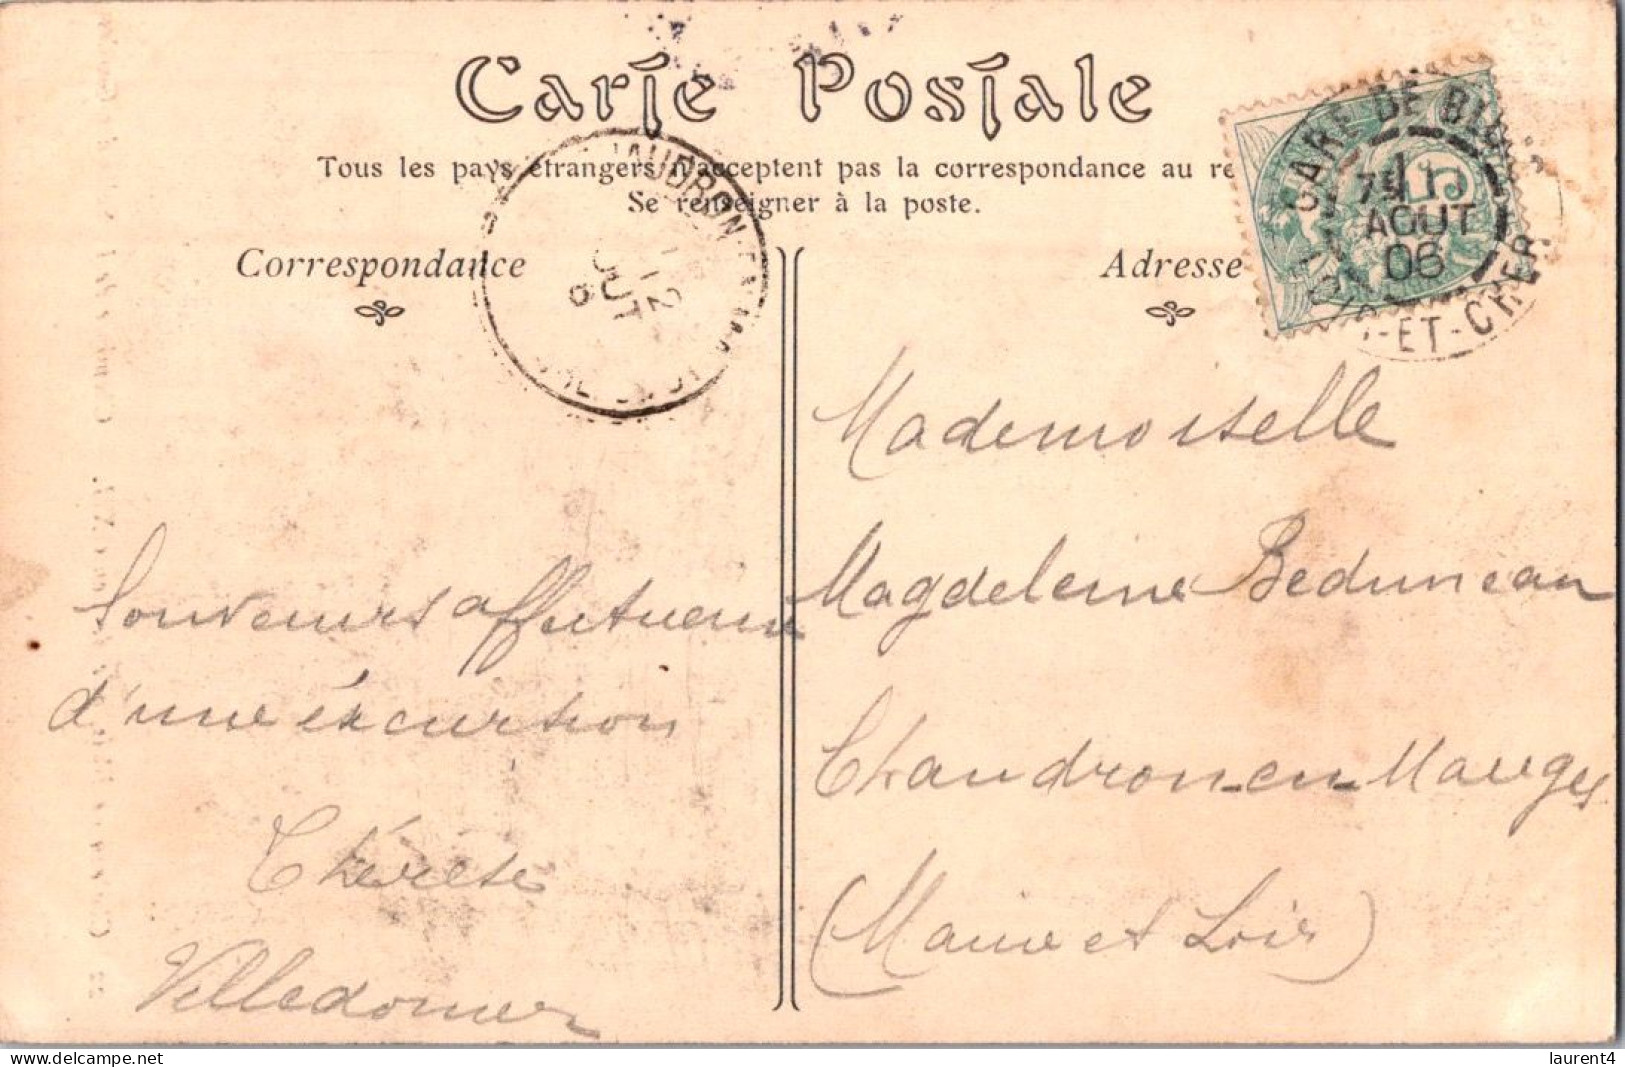 Carte Postale
Tous les pays étrangers n'acceptent pas la correspondance au
Se renseigner à la poste.
Correspondance
Adresse
GARE DE BLOIS
AOUT
06
-ET-CHER
12
Souvenirs affectueux
d'une éxcursion
Thérèse
Villedomer
Mademoiselle
Magdeleine Beduneau
Chaudron-en-Mauges
(Maine et Loire)
laurent4